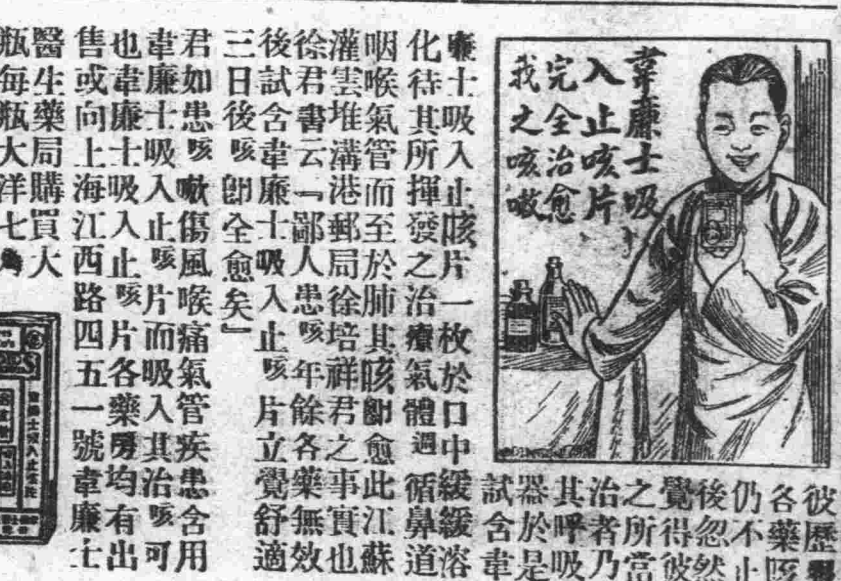 韋廉士吸
入止咳片
完全治愈
我之咳嗽
彼歷嘗
各藥咳
仍不止
後忽然
覺得彼
之所當
治者乃
其呼吸
器於是
試含韋
廉士吸入止咳片一枚於口中緩緩溶
化待其所揮發之治療氣體週循鼻道
咽喉氣管而至於肺其咳卽愈此江蘇
灌雲堆溝港郵局徐培祥君之事實也
徐君書云『鄙人患咳年餘各藥無效
後試含韋廉士吸入止咳片立覺舒適
三日後咳卽全愈矣』
君如患咳嗽傷風喉痛氣管疾患含用
韋廉士吸入止咳片而吸入其治咳可
也韋廉士吸入止咳片各藥房均有出
售或向上海江西路四五一號韋廉士
醫生藥局購買大
瓶每瓶大洋七角